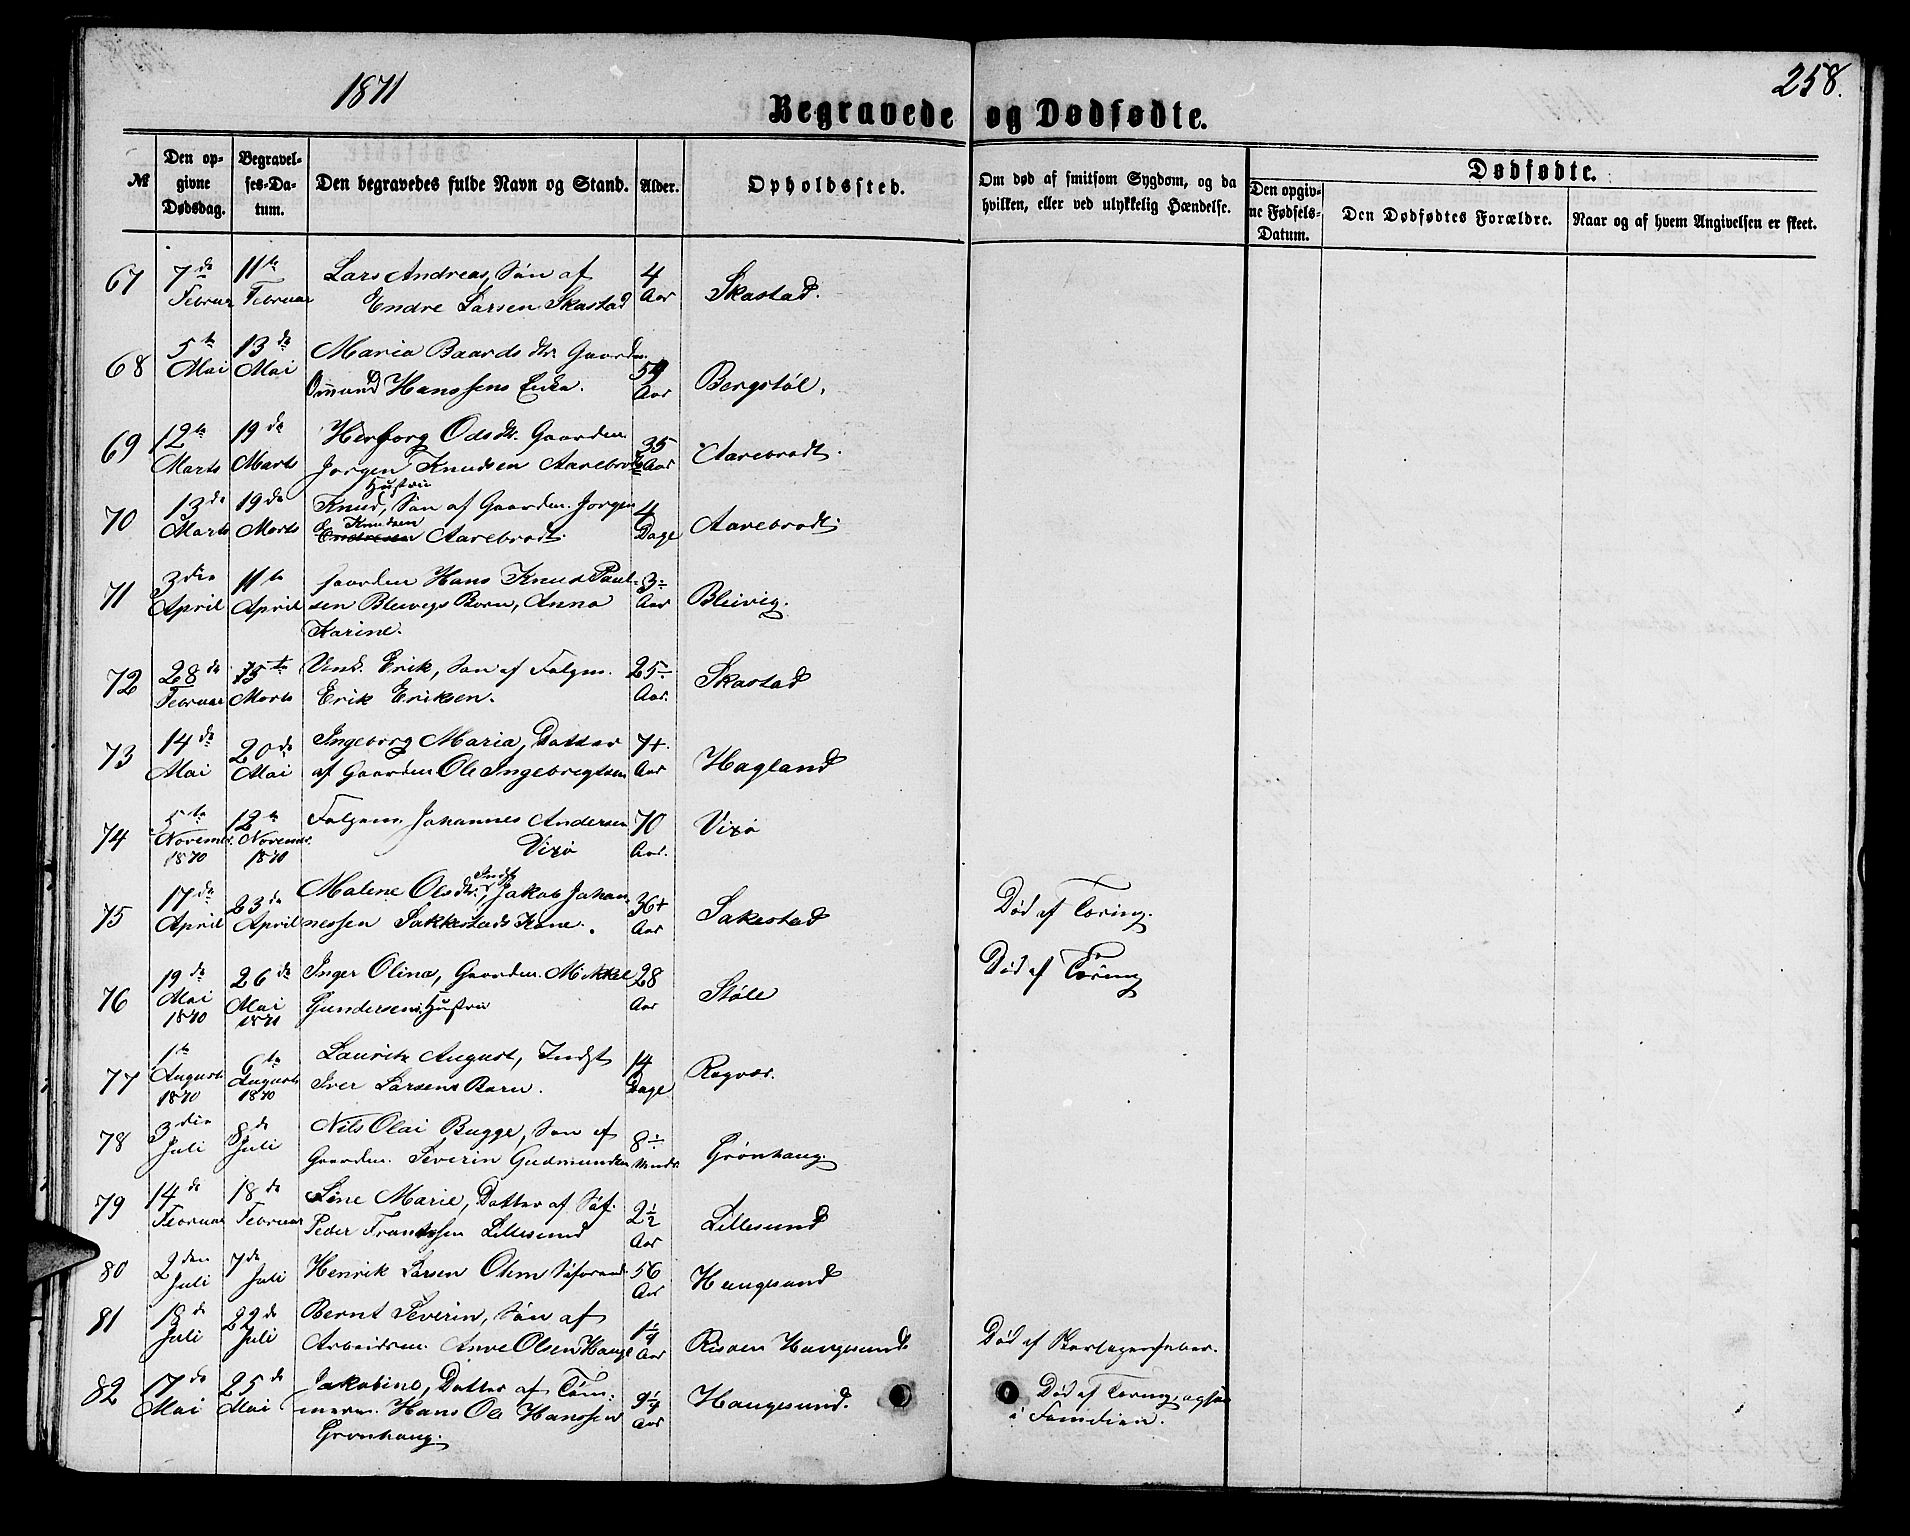 1871
258.
Begravede og Dødfødte.
№
Den opgivne Dødsdag.
Begravelses-Datum.
Den begravedes fulde Navn og Stand.
Alder.
Opholdssted.
Om død af smitsom Sygdom, og da hvilken, eller ved ulykkelig Hændelse.
Dødfødte.
Den opgivne Fødsels-Datum.
Den Dødfødtes Forældre.
Naar og af hvem Angivelsen er skeet.
67 7de Februar 11te Februar Lars Andreas, Søn af 4 Aar Skastad.
Endre Larsen Skastad
68 5te Mai 13de Mai Maria Baardsdtr. Gaardm. 59 Aar Bergstøl.
Omund Hanssens Enke.
69 12te Marts 19de Marts Herborg Odsdtr. Gaardm. 35 Aar Aarebrodt.
Jørgen Knudsen Aarebrodts
Hustru
70 13de Marts 19de Marts Knud, Søn af Gaardm. Jørgen 4 Dage Aarebrodt.
Knudsen
Endresen Aarebrodt.
71 3die April 11te April Gaardm Hans Knud Paul- 3 Aar Bleivig.
sen Bleivigs Barn, Anna
Karine.
72 28de Februar 15te Marts Unk. Erik, Søn af Folgm. 25 Aar. Skastad
Erik Eriksen.
73 14de Mai 20de Mai Ingeborg Maria, Datter 7+ Aar Hagland
af Gaardm. Ole Ingebregtsen
74 5te Novembr. 1870 12te Novembr. 1870 Folgem. Johannes Andersen 70 Aar. Vixø
Vixø
75 17de April 23de April Malene Olsdtr., Indst Jakob Johan- 36+ Aar Sakestad Død af Tæring.
nessen Sakkestads Kone.
76 19de Mai 1870 26de Mai 1871 Inger Olina, Gaardm. Mikkel 28 Aar Støle Død af Tæring
Gundersens Hustru
77 1te August 1870 6te August 1870 Lauritz August, Indst 14 Dage Røgvær.
Iver Larsens Barn.
78 3die Juli 8de Juli Nils Olai Bugge, Søn af 8 Mndr. Grønhaug.
Gaardm. Severin Gudmundsen
79 14de Februar 18de Februar Line Marie, Datter af Søf. 2½ Aar Lillesund
Peder Frantssen Lillesund
80 2den Juli 7de Juli Henrik Larsen Ohm Søforend 56 Aar Haugesund
81 18de Juli 22de Juli Bernt Severin, Søn af 1¼ Aar Risøen Haugesund.
Arbeidsm. Anve Olsen Hauge
82 17de Mai 25de Mai Jakobine, Datter af Tøm- 9¼ Aar Haugesund. Død af Tæring, ogsaa
merm. Hans Ole Hanssen i Familien.
Grønhaug.